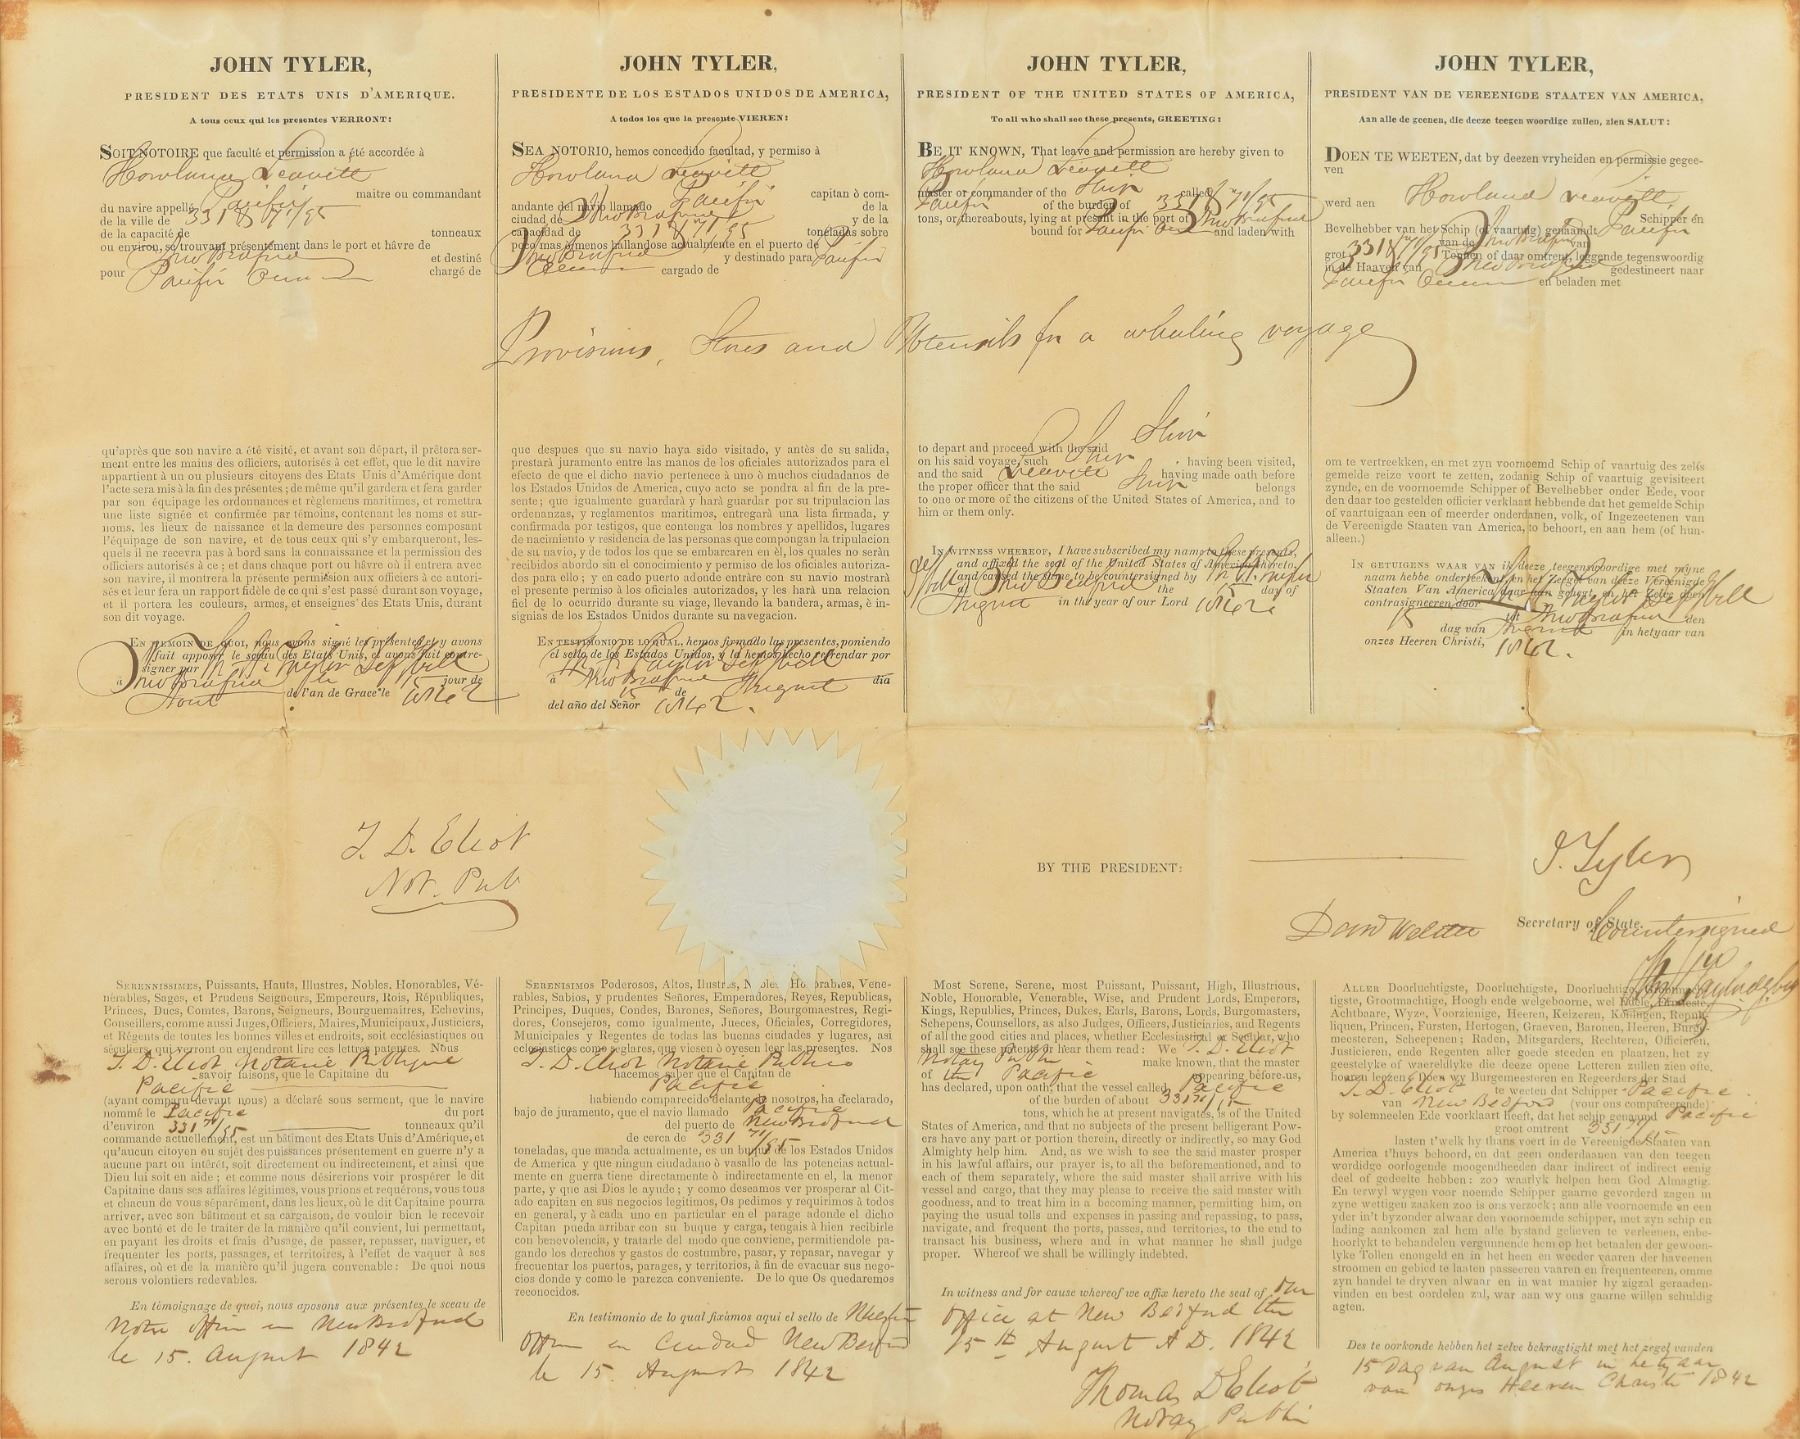 JOHN TYLER,
PRESIDENT DES ETATS UNIS D'AMERIQUE.
A tous ceux qui les presentes VERRONT:
SOIT NOTOIRE que faculté et permission a été accordée à
Howland Leavitt
maitre ou commandant
du navire appellé Pacific
de la ville de
de la capacité de 331 & 71/95 tonneaux
ou environ, se trouvant présentement dans le port et hâvre de
New Bedford et destiné
pour Pacific Ocean chargé de
JOHN TYLER,
PRESIDENTE DE LOS ESTADOS UNIDOS DE AMERICA,
A todos los que la presente VIEREN:
SEA NOTORIO, hemos concedido facultad, y permiso à
Howland Leavitt
capitan ò com-
andante del navio llamado Pacific de la
ciudad de New Bedford y de la
capacidad de 331 & 71/95 toneladas sobre
poco mas ò menos hallandose actualmente en el puerto de
New Bedford y destinado para Pacific
Ocean cargado de
JOHN TYLER,
PRESIDENT OF THE UNITED STATES OF AMERICA,
To all who shall see these presents, GREETING:
BE IT KNOWN, That leave and permission are hereby given to
Howland Leavitt
master or commander of the Ship called
Pacific of the burden of 331 & 71/95
tons, or thereabouts, lying at present in the port of New Bedford
bound for Pacific Ocean and laden with
JOHN TYLER,
PRESIDENT VAN DE VEREENIGDE STAATEN VAN AMERICA,
Aan alle de geenen, die deeze teegen woordige zullen, zien SALUT:
DOEN TE WEETEN, dat by deezen vryheiden en permissie gegee-
ven
werd aen Howland Leavitt,
Schipper én
Bevelhebber van het Schip (of vaartuig) genaamdt Pacific
van de New Bedford van
grot 331 & 71/95 Tonnen of daar omtrent, leggende tegenswoordig
in de Haaven van New Bedford gedestineert naar
Pacific Ocean en beladen met
Provisions, Stores and Utensils for a whaling voyage
qu'après que son navire a été visité, et avant son départ, il prêtera ser-
ment entre les mains des officiers, autorisés à cet effet, que le dit navire
appartient à un ou plusieurs citoyens des Etats Unis d'Amérique dont
l'acte sera mis à la fin des présentes; de même qu'il gardera et fera garder
par son équipage les ordonnances et règlemens maritimes, et remettra
une liste signée et confirmée par témoins, contenant les noms et sur-
noms, les lieux de naissance et la demeure des personnes composant
l'équipage de son navire, et de tous ceux qui s'y embarqueront, les-
quels il ne recevra pas à bord sans la connaissance et la permission des
officiers autorisés à ce; et dans chaque port ou hâvre où il entrera avec
son navire, il montrera la présente permission aux officiers à ce autori-
sés et leur fera un rapport fidèle de ce qui s'est passé durant son voyage,
et il portera les couleurs, armes, et enseignes des Etats Unis, durant
son dit voyage.
EN TEMOIN DE QUOI, nous avons signé les présentes, et y avons
fait apposer le sceau des Etats Unis, et avons fait contre-
signer par
à New Bedford le 15 jour de
Aout de l'an de Grace le 1842
que despues que su navio haya sido visitado, y antès de su salida,
prestarà juramento entre las manos de los oficiales autorizados para el
efecto de que el dicho navio pertenece à uno ò muchos ciudadanos de
los Estados Unidos de America, cuyo acto se pondra al fin de la pre-
sente; que igualmente guardarà y harà guardar por su tripulacion las
ordenanzas, y reglamentos maritimos, entregarà una lista firmada, y
confirmada por testigos, que contenga los nombres y apellidos, lugares
de nacimiento y residencia de las personas que compongan la tripulacion
de su navio, y de todos los que se embarcaren en èl, los quales no seràn
recibidos abordo sin el conocimiento y permiso de los oficiales autoriza-
dos para ello; y en cado puerto adonde entràre con su navio mostrarà
el presente permiso à los oficiales autorizados, y les harà una relacion
fiel de lo ocurrido durante su viage, llevando la bandera, armas, è in-
signias de los Estados Unidos durante su navegacion.
EN TESTIMONIO DE LO QUAL, hemos firmado las presentes, poniendo
el sello de los Estados Unidos, y la hemos hecho refrendar por
à New Bedford dia
15 de August
del año del Señor 1842.
to depart and proceed with the said Ship
on his said voyage, such Ship having been visited,
and the said Leavitt having made oath before
the proper officer that the said Ship belongs
to one or more of the citizens of the United States of America, and to
him or them only.
IN WITNESS WHEREOF, I have subscribed my name to these presents,
and affixed the seal of the United States of America thereto,
and caused the same to be countersigned by
New Bedford the day of
August in the year of our Lord 1842
om te vertreekken, en met zyn voornoemd Schip of vaartuig des zelfs
gemelde reize voort te zetten, zodanig Schip of vaartuig gevisiteert
zynde, en de voornoemde Schipper of Bevelhebber onder Eede, voor
den daar toe gestelden officier verklaart hebbende dat het gemelde Schip
of vaartuigaan een of meerder onderdanen, volk, of Ingezeetenen van
de Vereenigde Staaten van America, to behoort, en aan hem (of hun-
alleen.)
IN GETUIGENS WAAR VAN ik deeze teegenswoordige met myne
naam hebbe ondertekent, en het Zeegel van deeze Vereenigde
Staaten Van America daar aan gehegt, en het Zelve doen
contrasigneeren door
15 tot New Bedford den
dag van August in het yaar van
onzes Heeren Christi, 1842.
T. D. Eliot
Not. Pub
BY THE PRESIDENT:
J. Tyler
Danl Webster Secretary of State.
Countersigned
SERENNISSIMES, Puissants, Hauts, Illustres, Nobles, Honorables, Vé-
nérables, Sages, et Prudens Seigneurs, Empereurs, Rois, Républiques,
Princes, Ducs, Comtes, Barons, Seigneurs, Bourguemaitres, Echevins,
Conseillers, comme aussi Juges, Officiers, Maires, Municipaux, Justiciers,
et Régents de toutes les bonnes villes et endroits, soit ecclésiastiques ou
séculiers, qui verront ou entendront lire ces lettres patentes. Nous
T. D. Eliot Notaire Publique
savoir faisons, que le Capitaine du
Pacific
(ayant comparu devant nous) a déclaré sous serment, que le navire
nommé le Pacific du port
d'environ 331 71/95 tonneaux qu'il
commande actuellement, est un bâtiment des Etats Unis d'Amérique, et
qu'aucun citoyen ou sujet des puissances présentement en guerre n'y a
aucune part ou intérêt, soit directement ou indirectement, et ainsi que
Dieu lui soit en aide; et comme nous désirerions voir prospérer le dit
Capitaine dans ses affaires légitimes, vous prions et requérons, vous tous
et chacun de vous séparément, dans les lieux, où le dit Capitaine pourra
arriver, avec son bâtiment et sa cargaison, de vouloir bien le recevoir
avec bonté et de le traiter de la manière qu'il convient, lui permettant,
en payant les droits et frais d'usage, de passer, repasser, naviguer, et
frequenter les ports, passages, et territoires, à l'effet de vaquer à ses
affaires, où et de la manière qu'il jugera convenable: De quoi nous
serons volontiers redevables.
En témoignage de quoi, nous aposons aux présentes le sceau de
Notre office en New Bedford
le 15. August 1842
SERENISIMOS Poderosos, Altos, Ilustres, Nobles, Honorables, Vene-
rables, Sabios, y prudentes Señores, Emperadores, Reyes, Republicas,
Principes, Duques, Condes, Barones, Señores, Bourgomaestres, Regi-
dores, Consejeros, como igualmente, Jueces, Oficiales, Corregidores,
Municipales y Regentes de todas las buenas ciudades y lugares, asi
eclesiasticos como seglares, que viesen ò oyesen leer las presentes. Nos
T. D. Eliot Notario Publico
hacemos saber que el Capitan de
Pacific
habiendo comparecido delante de nosotros, ha declarado,
bajo de juramento, que el navio llamado Pacific
del puerto de New Bedford
de cerca de 331 71/95
toneladas, que manda actualmente, es un buque de los Estados Unidos
de America y que ningun ciudadano ò vasallo de las potencias actual-
mente en guerra tiene directamente ò indirectamente en el, la menor
parte, y que asi Dios le ayude; y como deseamos ver prosperar al Cit-
ado capitan en sus negocios legitimos, Os pedimos y requirimos à todos
en general, y à cada uno en particular en el parage adonde el dicho
Capitan pueda arribar con su buque y carga, tengais à bien recibirle
con benevolencia, y tratarle del modo que conviene, permitiendole pa-
gando los derechos y gastos de costumbre, pasar, y repasar, navegar y
frecuentar los puertos, parages, y territorios, à fin de evacuar sus nego-
cios donde y como le parezca conveniente. De lo que Os quedaremos
reconocidos.
En testimonio de lo qual fixàmos aqui el sello de
en Ciudad New Bedford
le 15. August 1842
Most Serene, Serene, most Puissant, Puissant, High, Illustrious,
Noble, Honorable, Venerable, Wise, and Prudent Lords, Emperors,
Kings, Republics, Princes, Dukes, Earls, Barons, Lords, Burgomasters,
Schepens, Counsellors, as also Judges, Officers, Justiciaries, and Regents
of all the good cities and places, whether Ecclesiastical or Secular, who
shall see these patents or hear them read: We T. D. Eliot
Notary Public make known, that the master
of the Pacific appearing before us,
has declared, upon oath, that the vessel called Pacific
of the burden of about 331 71/95
tons, which he at present navigates, is of the United
States of America, and that no subjects of the present belligerant Pow-
ers have any part or portion therein, directly or indirectly, so may God
Almighty help him. And, as we wish to see the said master prosper
in his lawful affairs, our prayer is, to all the beforementioned, and to
each of them separately, where the said master shall arrive with his
vessel and cargo, that they may please to receive the said master with
goodness, and to treat him in a becoming manner, permitting him, on
paying the usual tolls and expenses in passing and repassing, to pass,
navigate, and frequent the ports, passes, and territories, to the end to
transact his business, where and in what manner he shall judge
proper. Whereof we shall be willingly indebted.
In witness and for cause whereof we affix hereto the seal of Our
Office at New Bedford the
15th August A.D. 1842
Thomas D Eliot
Notary Public
ALLER Doorluchtigste, Doorluchtigste, Doorluchtige,
tigste, Grootmachtige, Hoogh ende welgeboorne, wel Edele,
Achtbaare, Wyze, Voorzienige, Heeren, Keizeren, Koningen, Repub-
liquen, Princen, Fursten, Hertogen, Graeven, Baronen, Heeren, Burge-
meesteren, Scheepenen; Raden, Mitsgarders, Rechteren, Officieren,
Justicieren, ende Regenten aller goede steeden en plaatzen, het zy
geestelyke of waereldlyke die deeze opene Letteren zullen zien ofte
hooren lezen: Doen wy Burgemeesteren en Regeerders der Stad
T. D. Eliot te weeten dat Schipper Pacific
van New Bedford (voor ons compareerende)
by solemneelen Ede voorklaart heeft, dat het schip genaamd Pacific
groot omtrent 331 71/95
lasten t'welk hy thans voert in de Vereenigde Staaten van
America t'huys behoord, en dat geen onderdaanen van den teegen
wordidge oorlogende moogendheeden daar indirect of indirect eenig
deel of gedeelte hebben: zoo waarlyk helpen hem God Almagtig.
En terwyl wygen voor noemde Schipper gaarne gevorderd zagen in
zyne wettigen zaaken zoo is ons verzock; ann alle voornoemde en een
yder in't byzonder alwaar den voornoemde schipper, met zyn schip en
lading aankomen zal hem alle bystand gelieven te verleenen, enbe-
hoorlykt te behandelen vergunnende hem op het betaalen der gewoon-
lyke Tollen enongeld en in het heen en weeder vaaren der haveenen
stroomen en gebied te laaten passeeren vaaren en frequenteeren, omme
zyn handel te dryven alwaar en in wat manier by zigzal geraaden-
vinden en best oordelen zal, war aan wy ons gaarne willen schuldig
agten.
Des te oorkonde hebben het zelve bekragtight met het zegel vanden
15 Dag van August in het jaar
van onzes Heeren Christi 1842